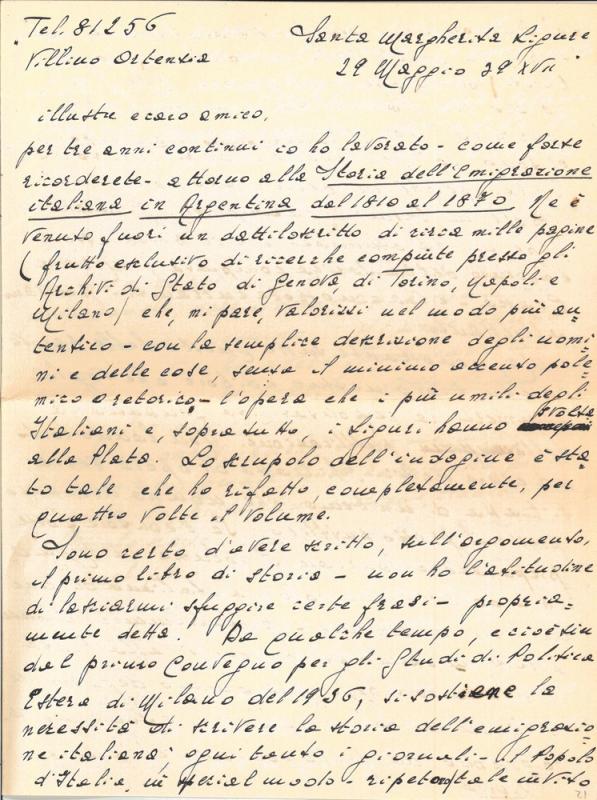 Tel. 81256
Villino Ortensia
Santa Margherita Ligure
29 Maggio 39 XVII
illustre e caro amico,
per tre anni continui io ho lavorato - come forse
ricorderete - attorno alla Storia dell'Emigrazione
italiana in Argentina dal 1810 al 1870. Ne è
venuto fuori un dattiloscritto di circa mille pagine
(frutto esclusivo di ricerche compiute presso gli
Archivi di Stato di Genova, di Torino, Napoli e
Milano) che, mi pare, valorizzi nel modo più au=
tentico - con la semplice descrizione degli uomi=
ni e delle cose, senza il minimo accento pole=
mico oretorico - l'opera che i più umili degli
Italiani e, sopra tutto, i Liguri hanno svolto
alla Plata. Lo scrupolo dell'indagine è sta=
to tale che ho rifatto, completamente, per
quattro volte il volume.
Sono certo d'avere scritto, sull'argomento,
il primo libro di storia - non ho l'abitudine
di lasciarmi sfuggire certe frasi - propria=
mente detta. Da qualche tempo, e cioè sin
dal primo Convegno per gli Studi di Politica
Estera di Milano del 1936, si sostiene la
necessità di scrivere la storia dell'emigrazio=
ne italiana; ogni tanto i giornali - il Popolo
d'Italia, in special modo - ripetono tale invito
21